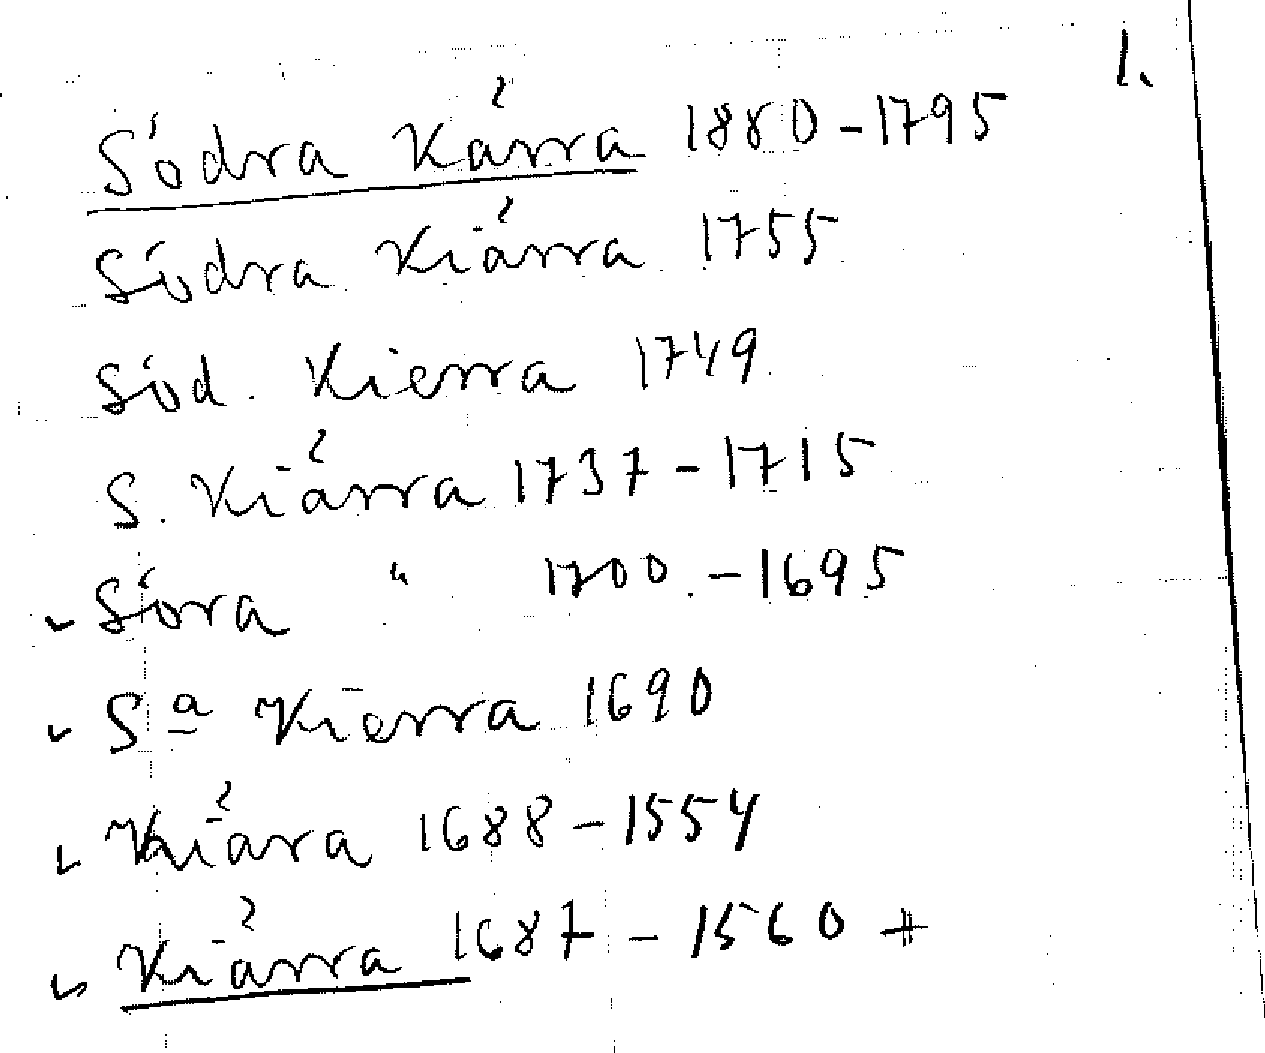 1.
Södra Kärra 1880-1795
Södra Kiärra 1755
Söd. Kierra 1749
S. Kiärra 1737-1715
Söra " 1700-1695
Sa Kierra 1690
Kiära 1688-1554
Kiärra 1687-1560 +